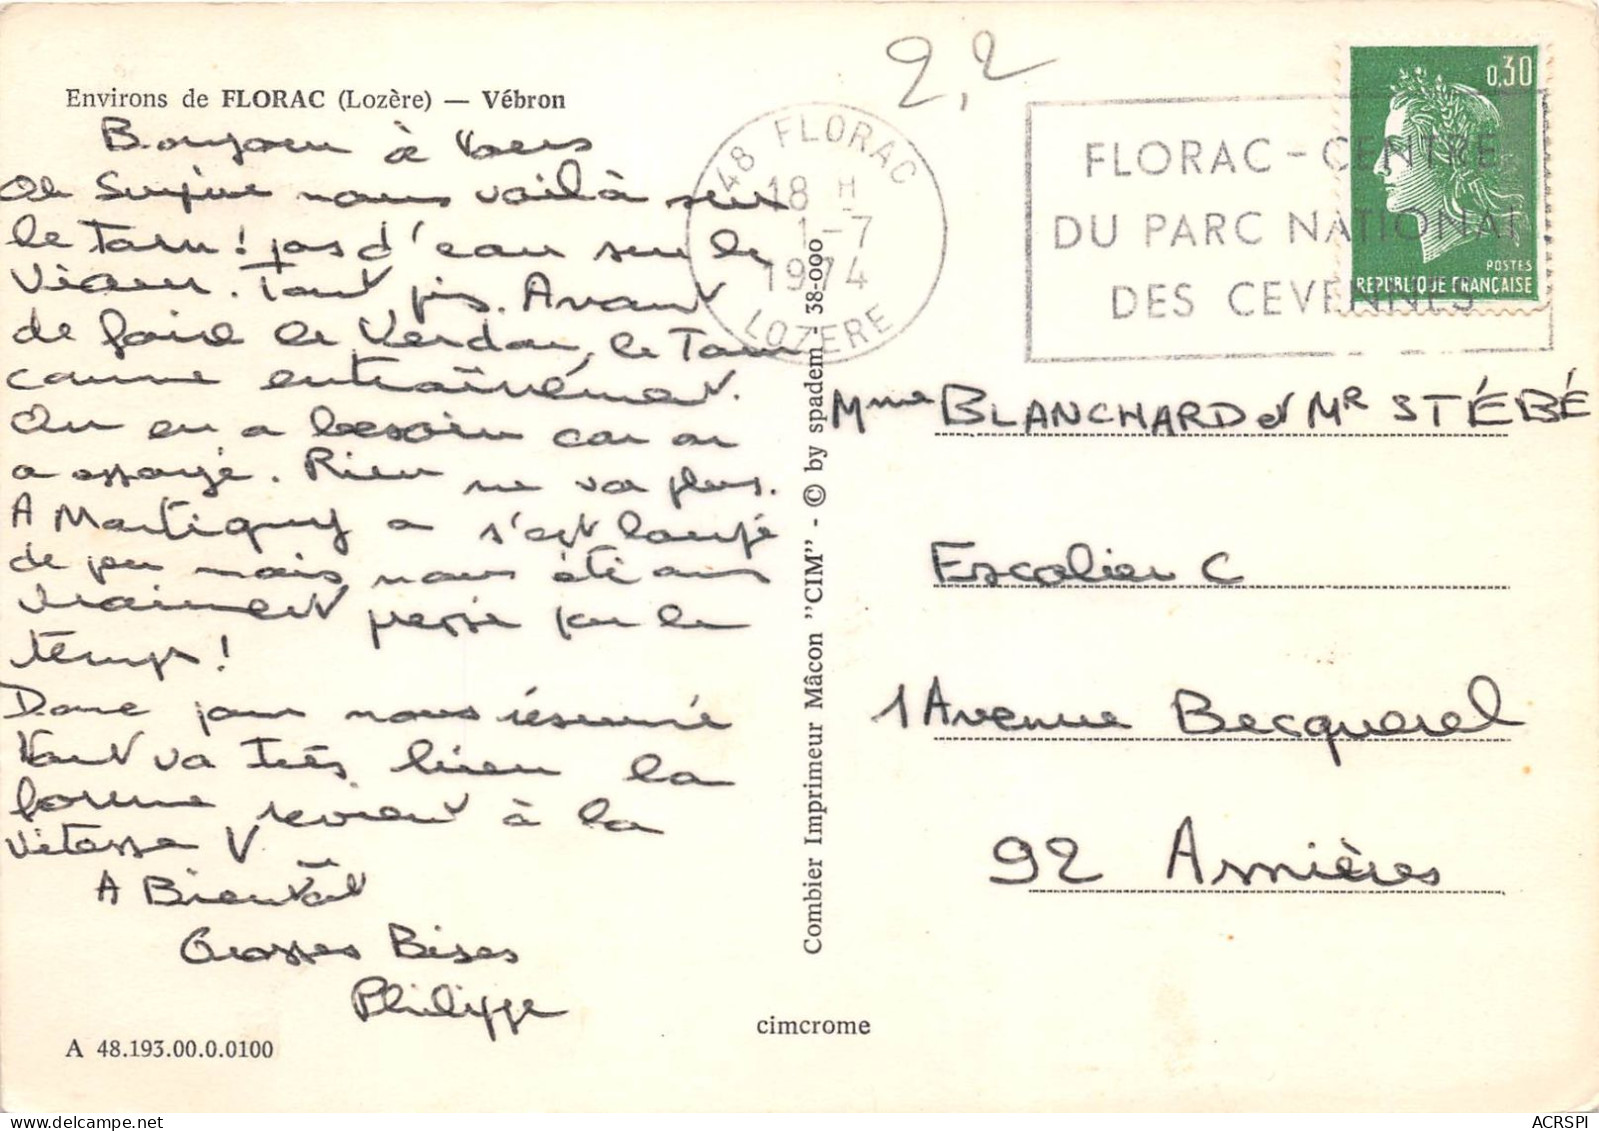 Environs de FLORAC (Lozère) — Vébron
Bonjour à tous
Oh surprise nous voilà sur
le Tarn! pas d'eau sur le
Viaur. Tant pis. Avant
de faire le Verdon, le Tarn
comme entraînément.
On en a besoin car on
a essayé. Rien ne va plus.
A Martigny on s'est loupé
de peu mais nous étions
vraiment pressé par le
temps!
Donc pour nous résumé
tout va très bien la
forme revient à la
vitesse V
A Bientôt
Grosses Bises
Philippe
A 48.193.00.0.0100
Combier Imprimeur Mâcon "CIM" - © by spadem - 38-000
cimcrome
2,2
48 FLORAC
18 H
1-7
1974
LOZERE
FLORAC - CENTRE
DU PARC NATIONAL
DES CEVENNES
0,30
POSTES
REPUBLIQUE FRANÇAISE
Mme BLANCHARD et MR STÉBÉ
Escalier C
1 Avenue Becquerel
92 Asnières
ACRSPI